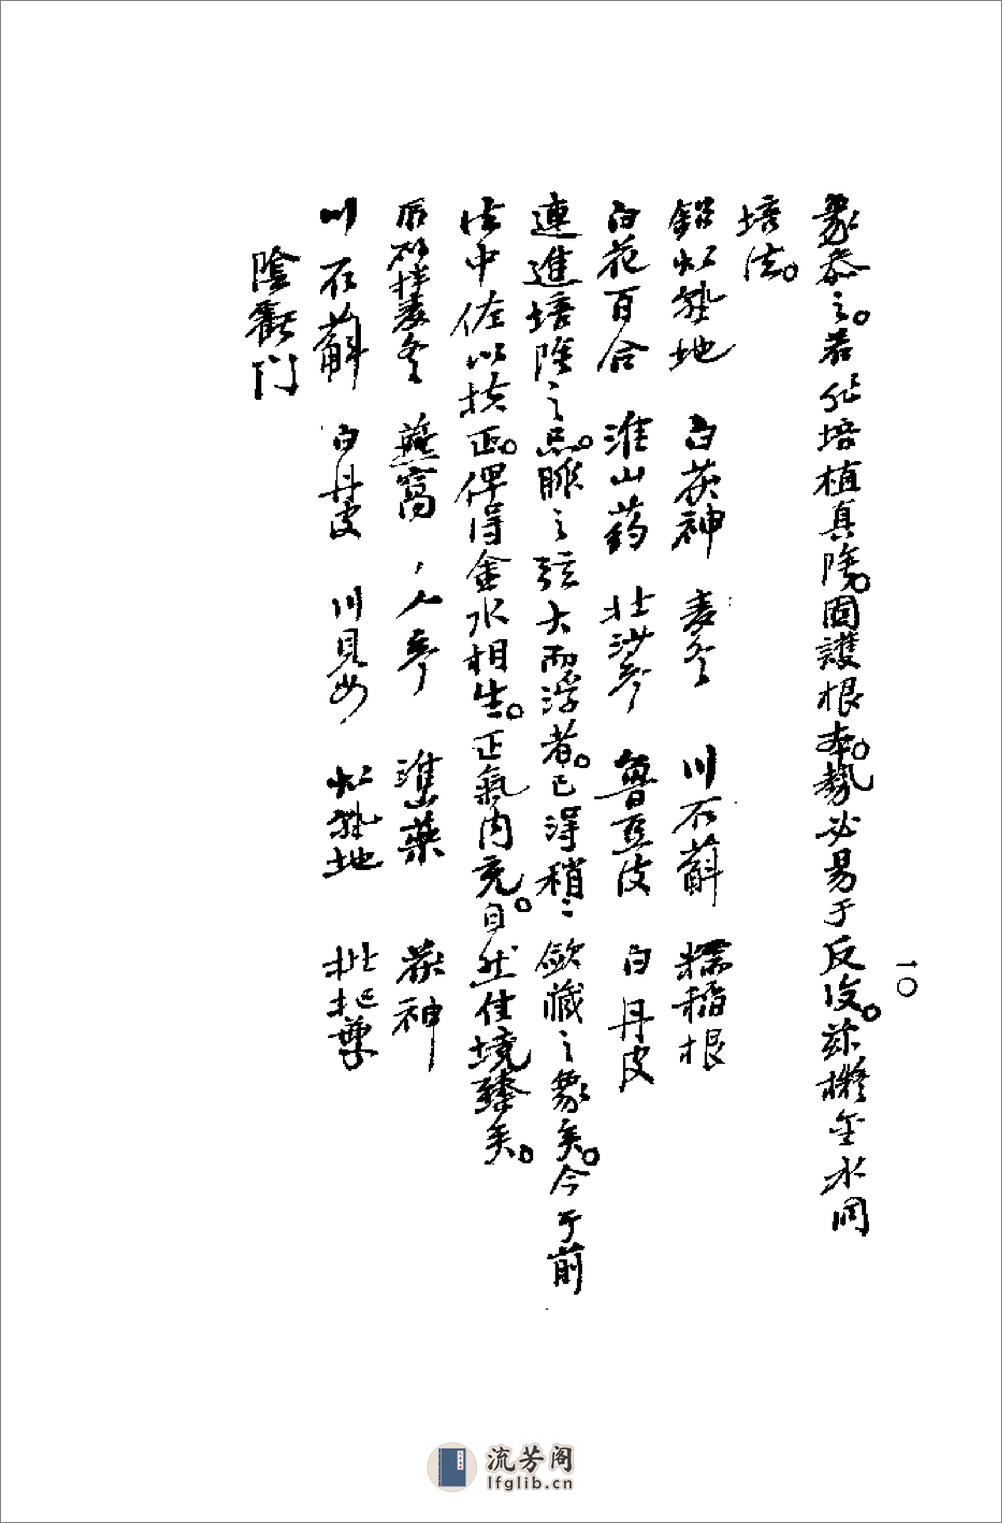 象忝之。若非培植真陰。固護根本。勢必易于反復。茲擬金水同
培法。
大熟地 白茯神 麦冬 川石斛 糯稻根
白花百合 淮山药 北沙參 魯豆皮 白丹皮
連進培陰之品。脈之弦大而浮者。已得稍々歛藏之象矣。今于前
法中佐以扶正。俾得金水相生。正氣內充。自然佳境臻矣。
拌麦冬 燕窩 人參 淮藥 茯神
川石斛 白丹皮 川貝母 大熟地 枇杷葉
陰虧門
一〇
流芳阁
lfglib.cn